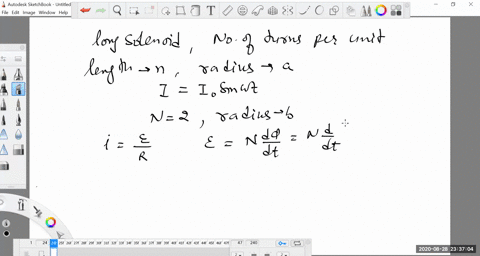 Autodesk SketchBook - Untitled
long solenoid, No. of turns per unit
length → n, radius → a
I = I₀ Sin ωt
N = 2, radius → b
i = ε/R    ε = N dΦ/dt = N d/dt
2020-08-28 23:37:04